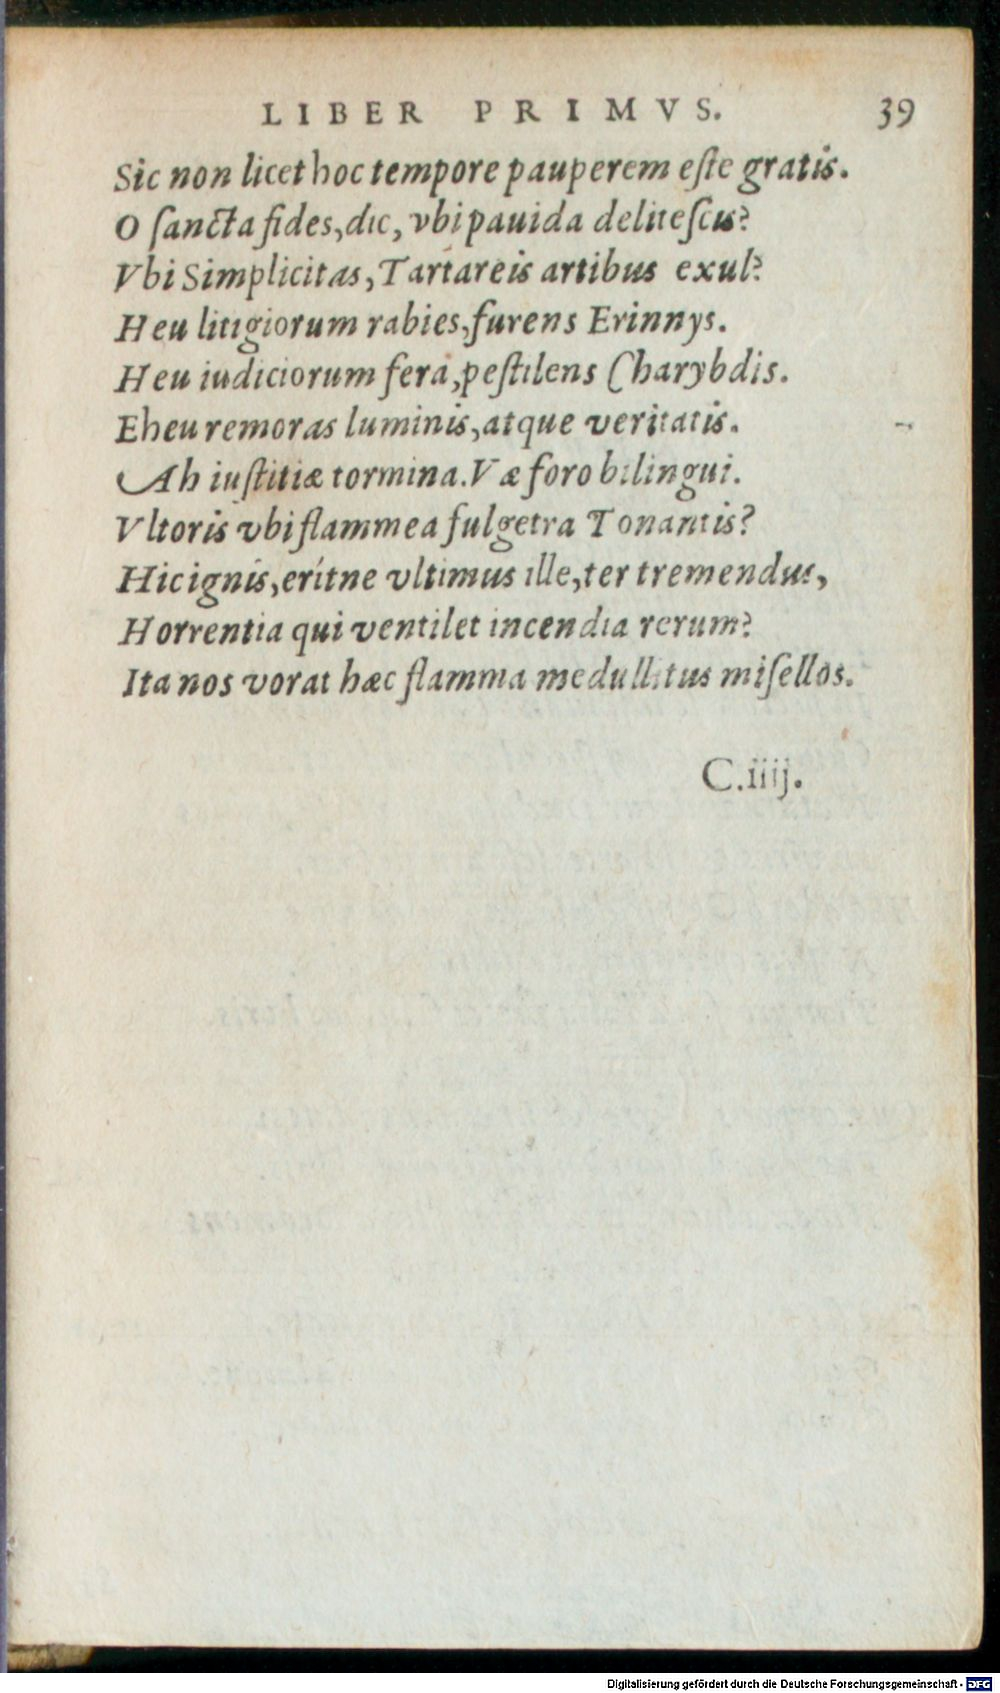 LIBER PRIMVS. 39
Sic non licet hoc tempore pauperem eſte gratis.
O ſancta fides, dic, vbi pauida deliteſcis?
Vbi Simplicitas, Tartareis artibus exul?
Heu litigiorum rabies, furens Erinnys.
Heu iudiciorum fera, peſtilens Charybdis.
Eheu remoras luminis, atque veritatis.
Ah iuſtitiæ tormina. Væ foro bilingui.
Vltoris vbi flammea fulgetra Tonantis?
Hic ignis, erítne vltimus ille, ter tremendus,
Horrentia qui ventilet incendia rerum?
Ita nos vorat hæc flamma medullitus miſellos.
C.iiij.
Digitalisierung gefördert durch die Deutsche Forschungsgemeinschaft - DFG